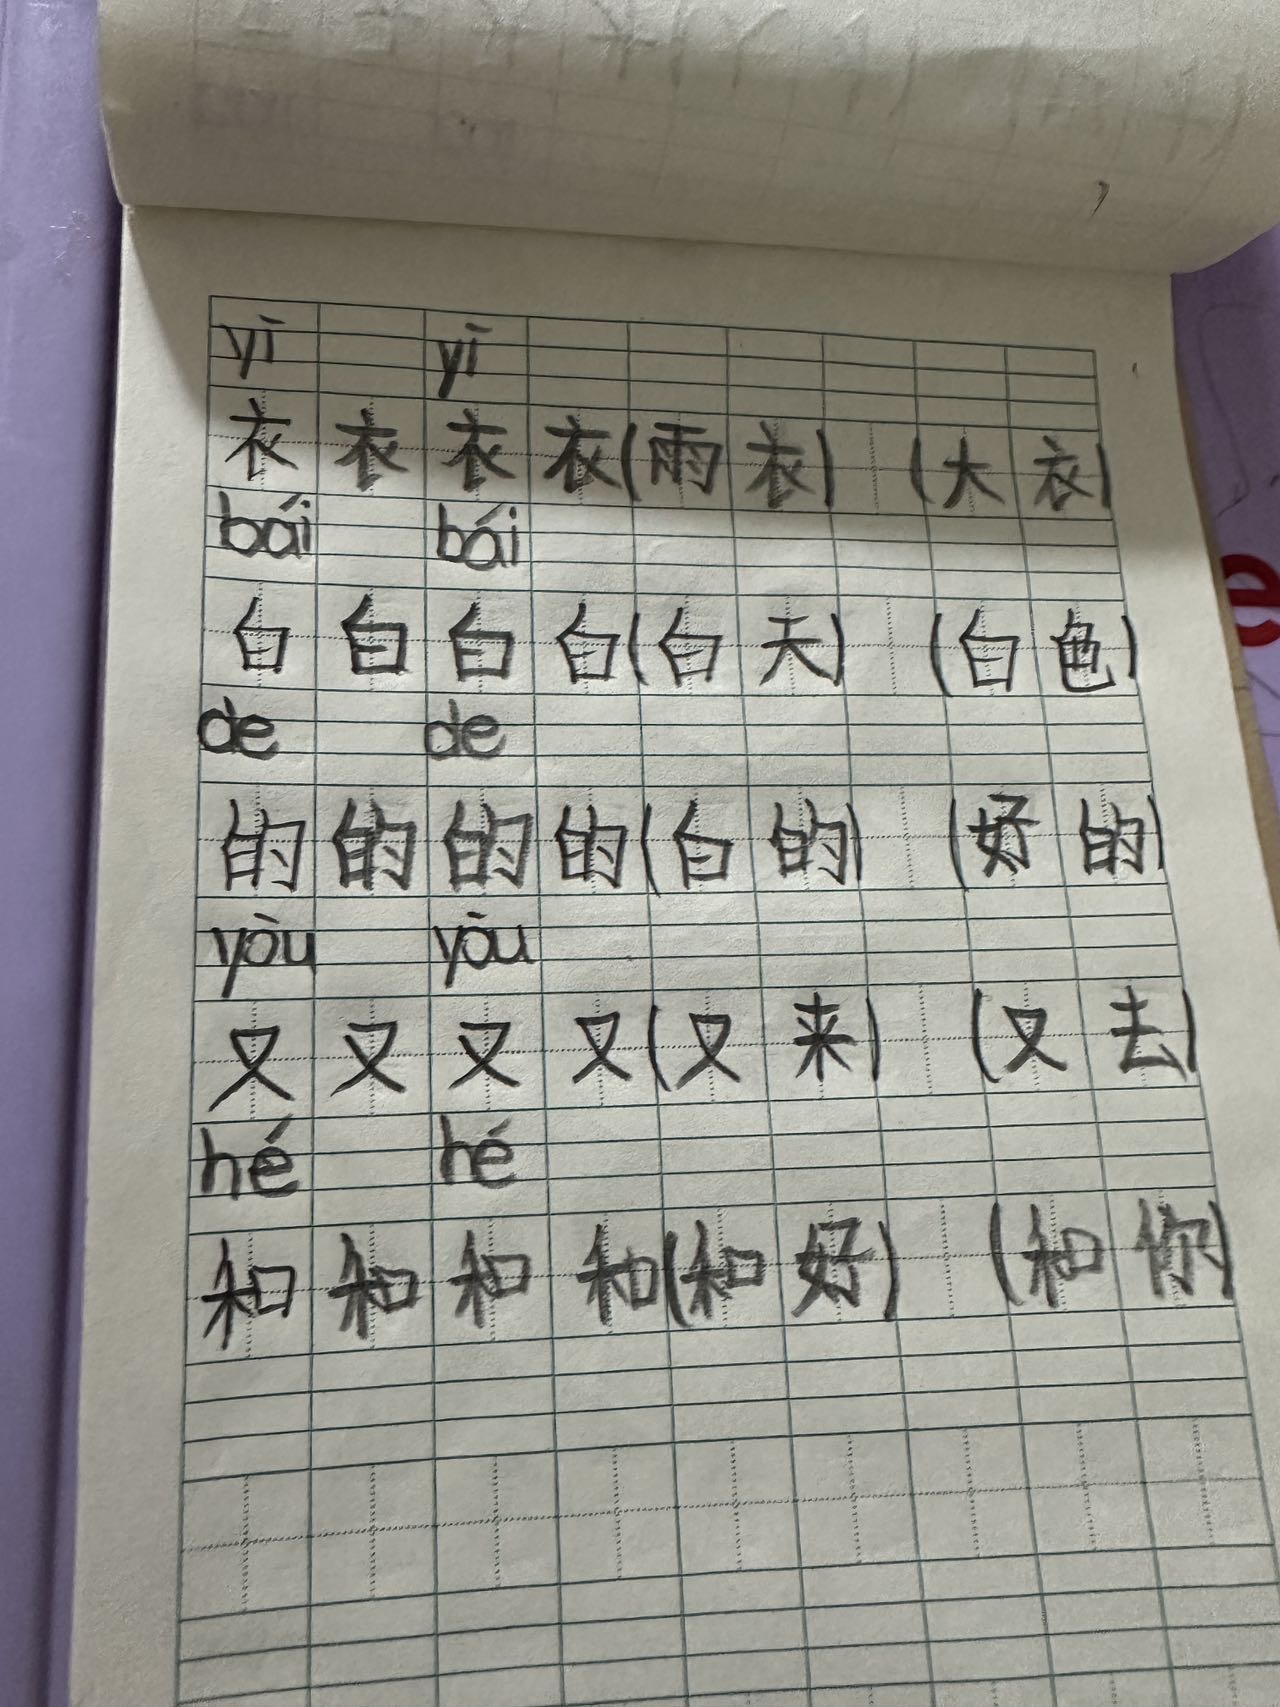 yī yī
衣 衣 衣 衣(雨 衣) (大 衣)
bái bái
白 白 白 白(白 天) (白 色)
de de
的 的 的 的(白 的) (好 的)
yòu yòu
又 又 又 又(又 来) (又 去)
hé hé
和 和 和 和(和 好) (和 你)
e